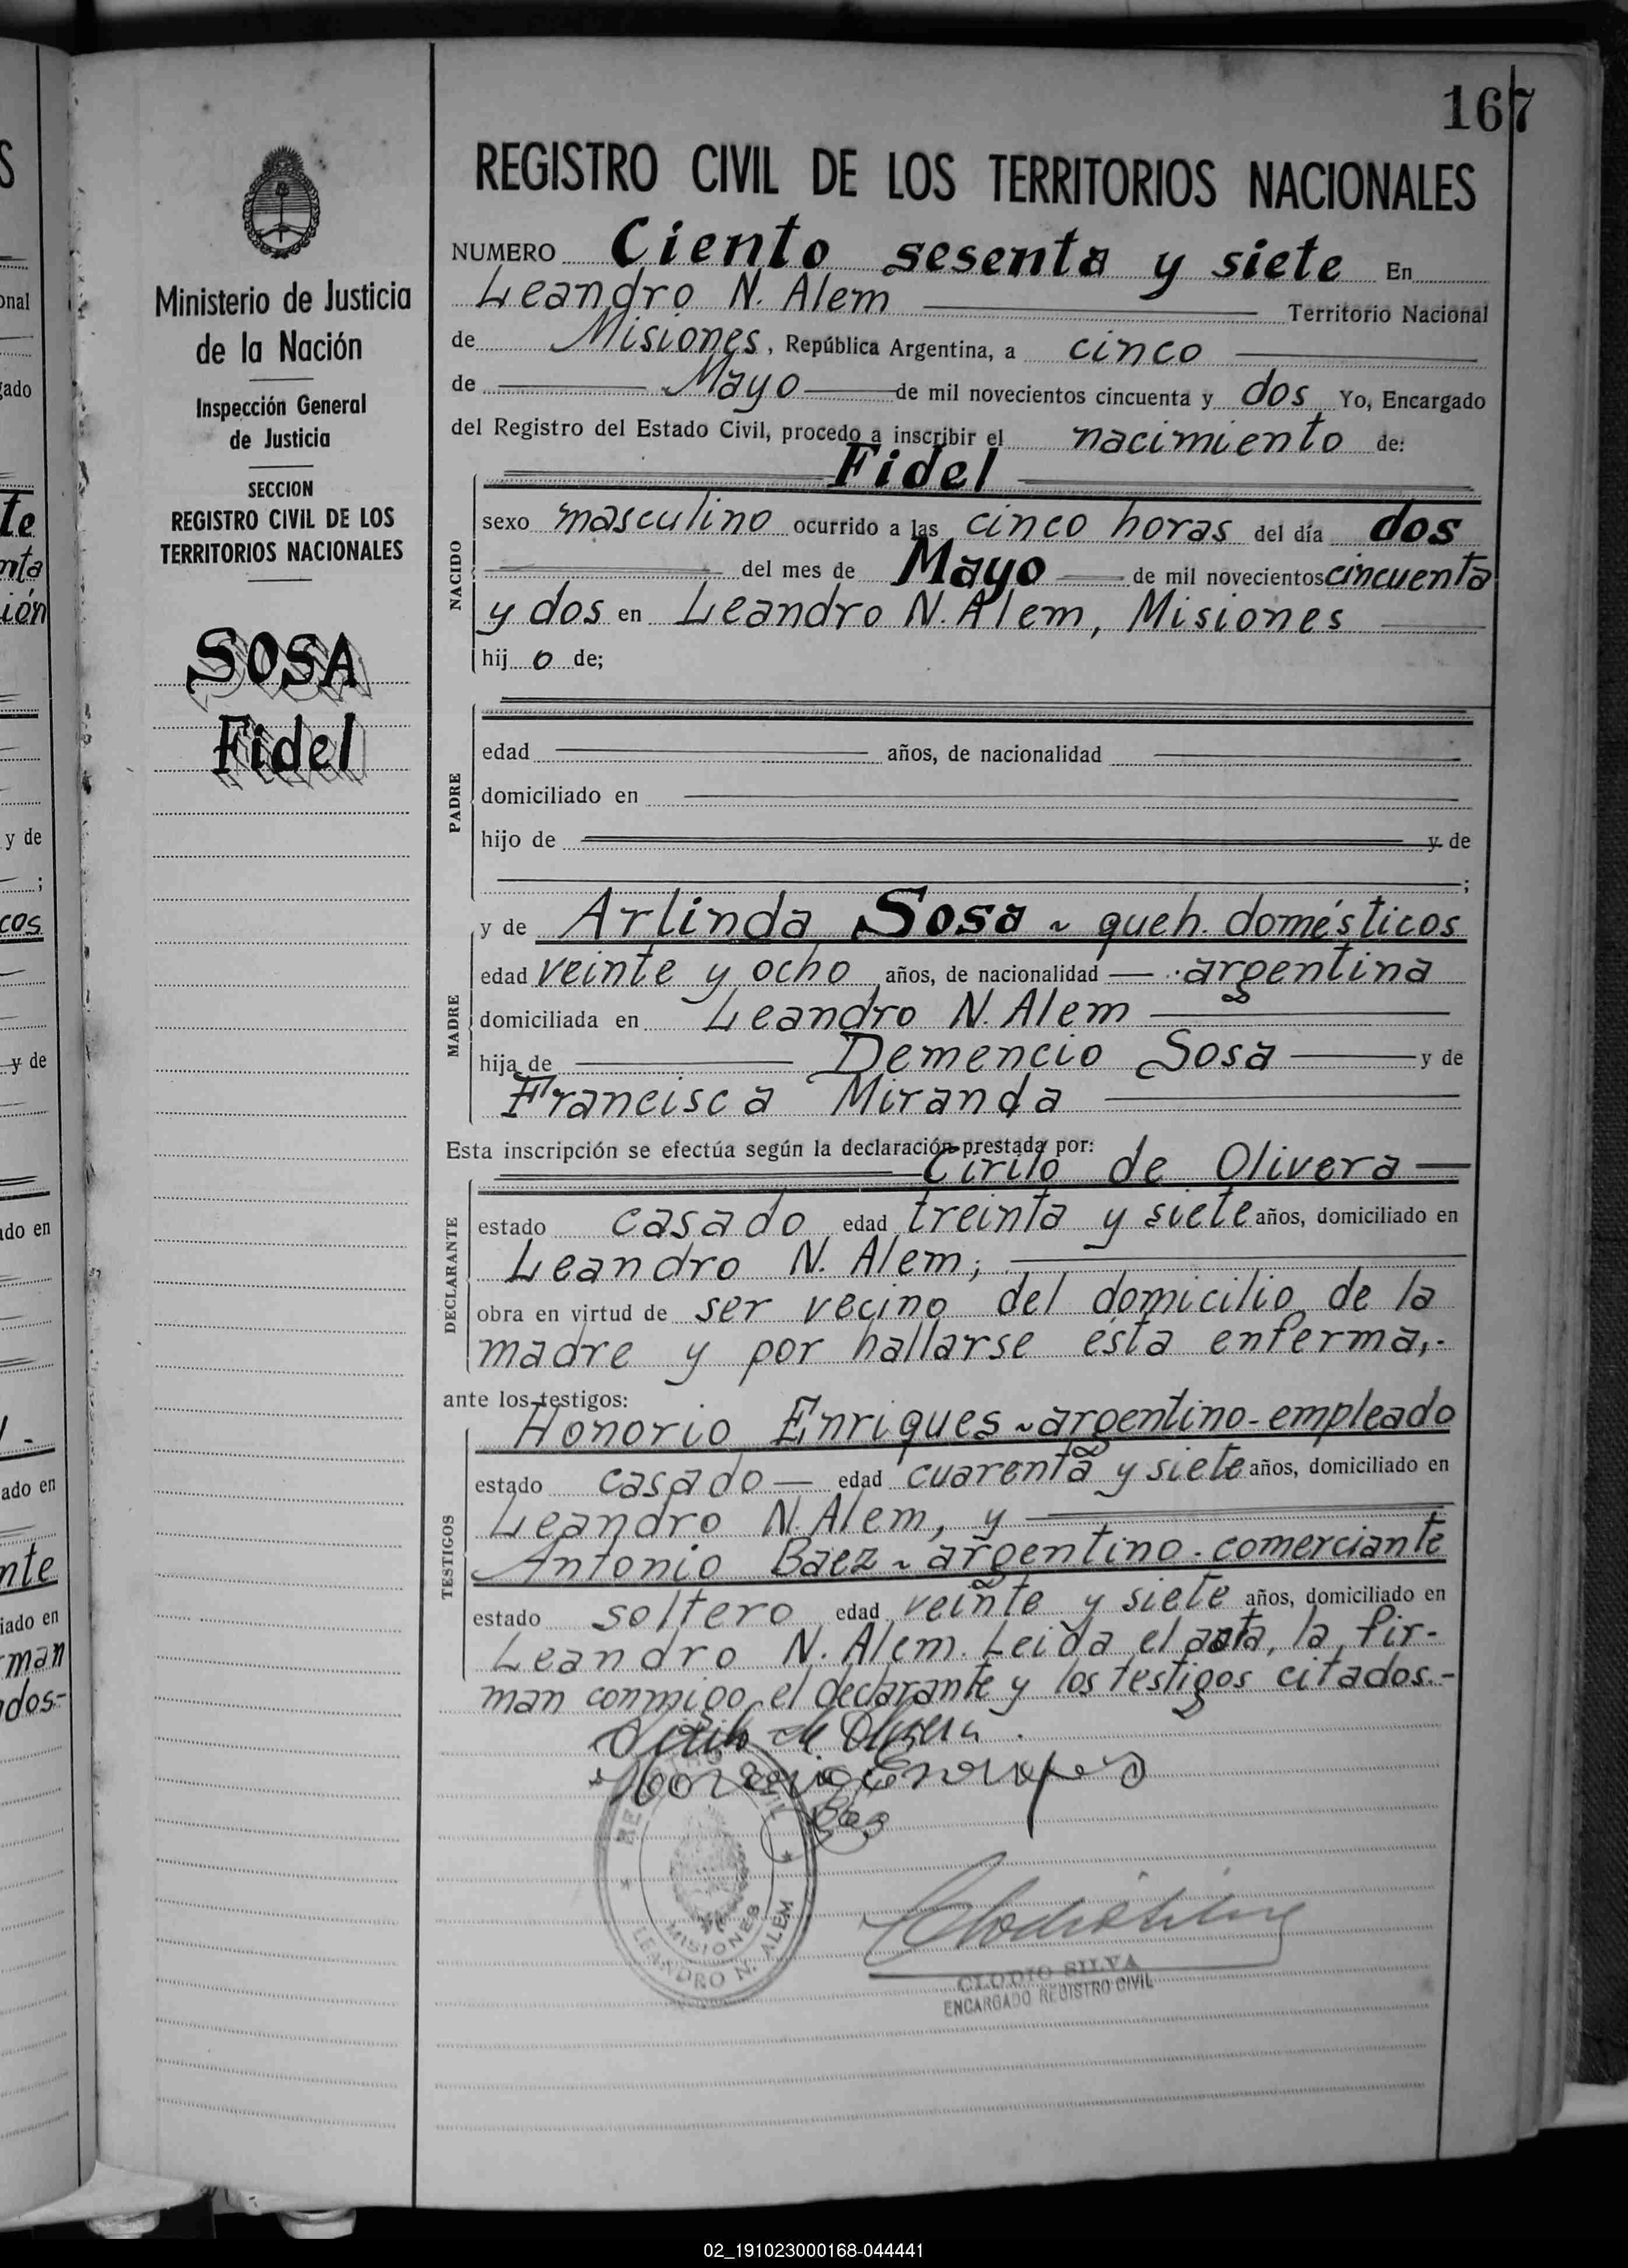 167
REGISTRO CIVIL DE LOS TERRITORIOS NACIONALES
Ministerio de Justicia
de la Nación
Inspección General
de Justicia
SECCION
REGISTRO CIVIL DE LOS
TERRITORIOS NACIONALES
SOSA
Fidel
NUMERO Ciento sesenta y siete En
Leandro N. Alem Territorio Nacional
de Misiones, República Argentina, a cinco
de Mayo de mil novecientos cincuenta y dos Yo, Encargado
del Registro del Estado Civil, procedo a inscribir el nacimiento de:
Fidel
NACIDO
sexo masculino ocurrido a las cinco horas del día dos
del mes de Mayo de mil novecientos cincuenta
y dos en Leandro N. Alem, Misiones
hij o de;
PADRE
edad años, de nacionalidad
domiciliado en
hijo de y de
;
MADRE
y de Arlinda Sosa ~ queh. domésticos
edad veinte y ocho años, de nacionalidad argentina
domiciliada en Leandro N. Alem
hija de Demencio Sosa y de
Francisca Miranda
Esta inscripción se efectúa según la declaración prestada por:
Cirilo de Olivera
DECLARANTE
estado casado edad treinta y siete años, domiciliado en
Leandro N. Alem;
obra en virtud de ser vecino del domicilio de la
madre y por hallarse ésta enferma,.-
ante los testigos:
Honorio Enriques ~ argentino - empleado
TESTIGOS
estado casado edad cuarenta y siete años, domiciliado en
Leandro N. Alem, y
Antonio Baez ~ argentino - comerciante
estado soltero edad veinte y siete años, domiciliado en
Leandro N. Alem. Leida el acta, la fir-
man conmigo el declarante y los testigos citados.-
Cirilo de Olivera
Honorio Enriques
Baez
REGISTRO CIVIL
MISIONES
LEANDRO N. ALEM
CLODIO SILVA
ENCARGADO REGISTRO CIVIL
02_191023000168-044441